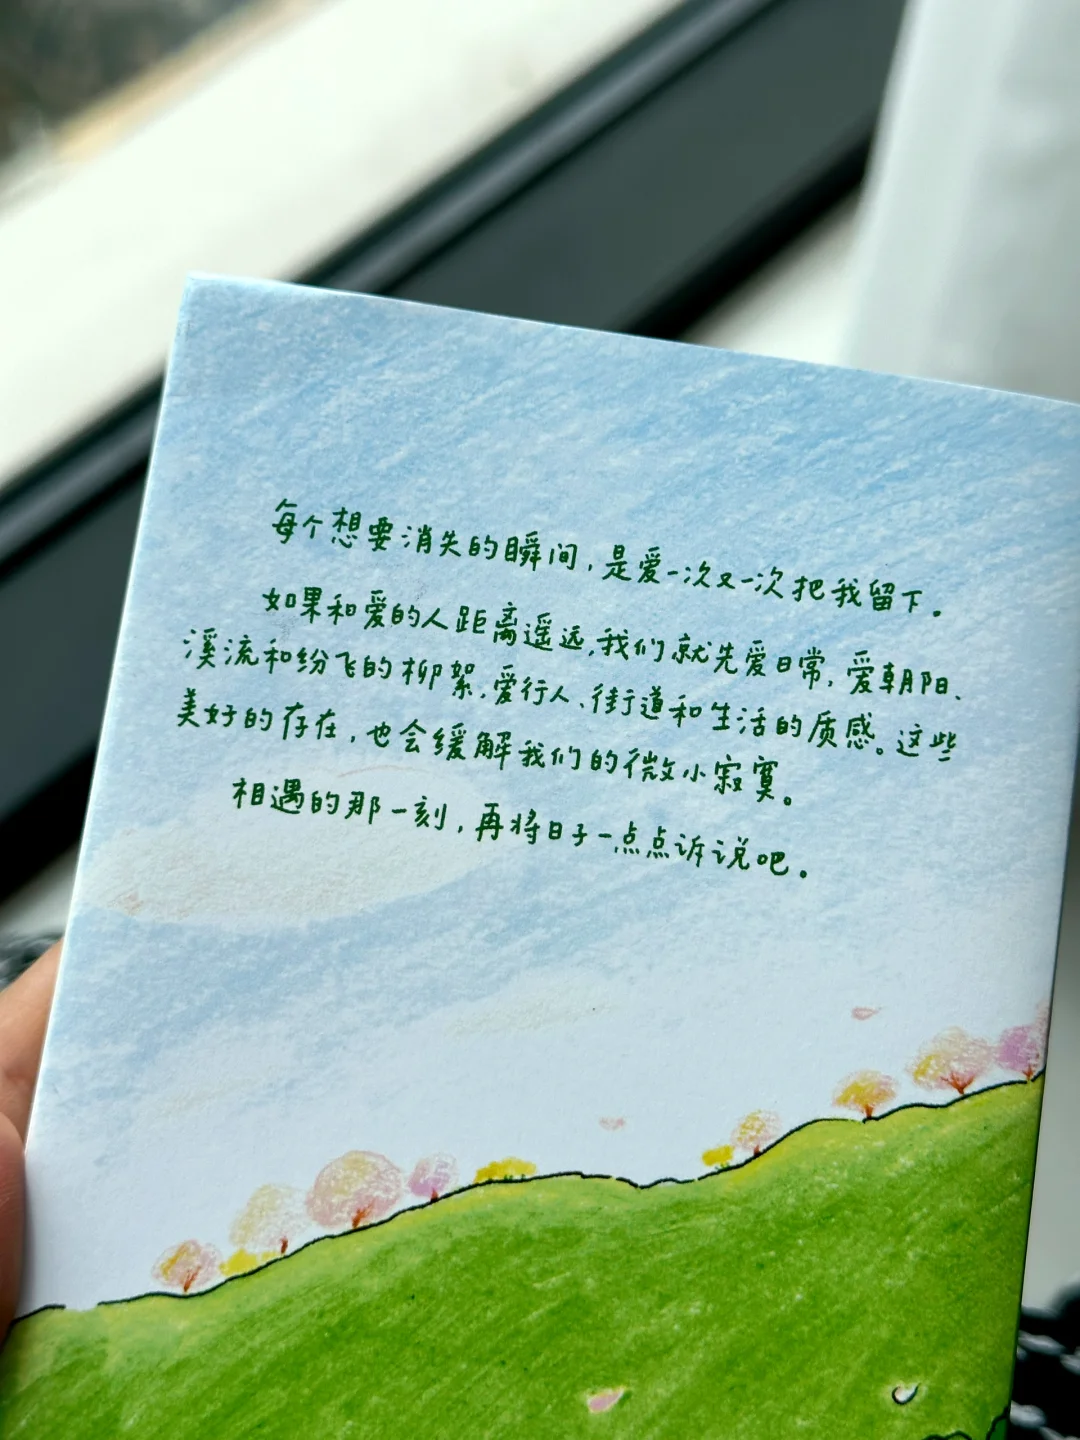 每个想要消失的瞬间，是爱一次又一次把我留下。
如果和爱的人距离遥远，我们就先爱日常，爱朝阳、
溪流和纷飞的柳絮，爱行人、街道和生活的质感。这些
美好的存在，也会缓解我们的微小寂寞。
相遇的那一刻，再将日子一点点诉说吧。